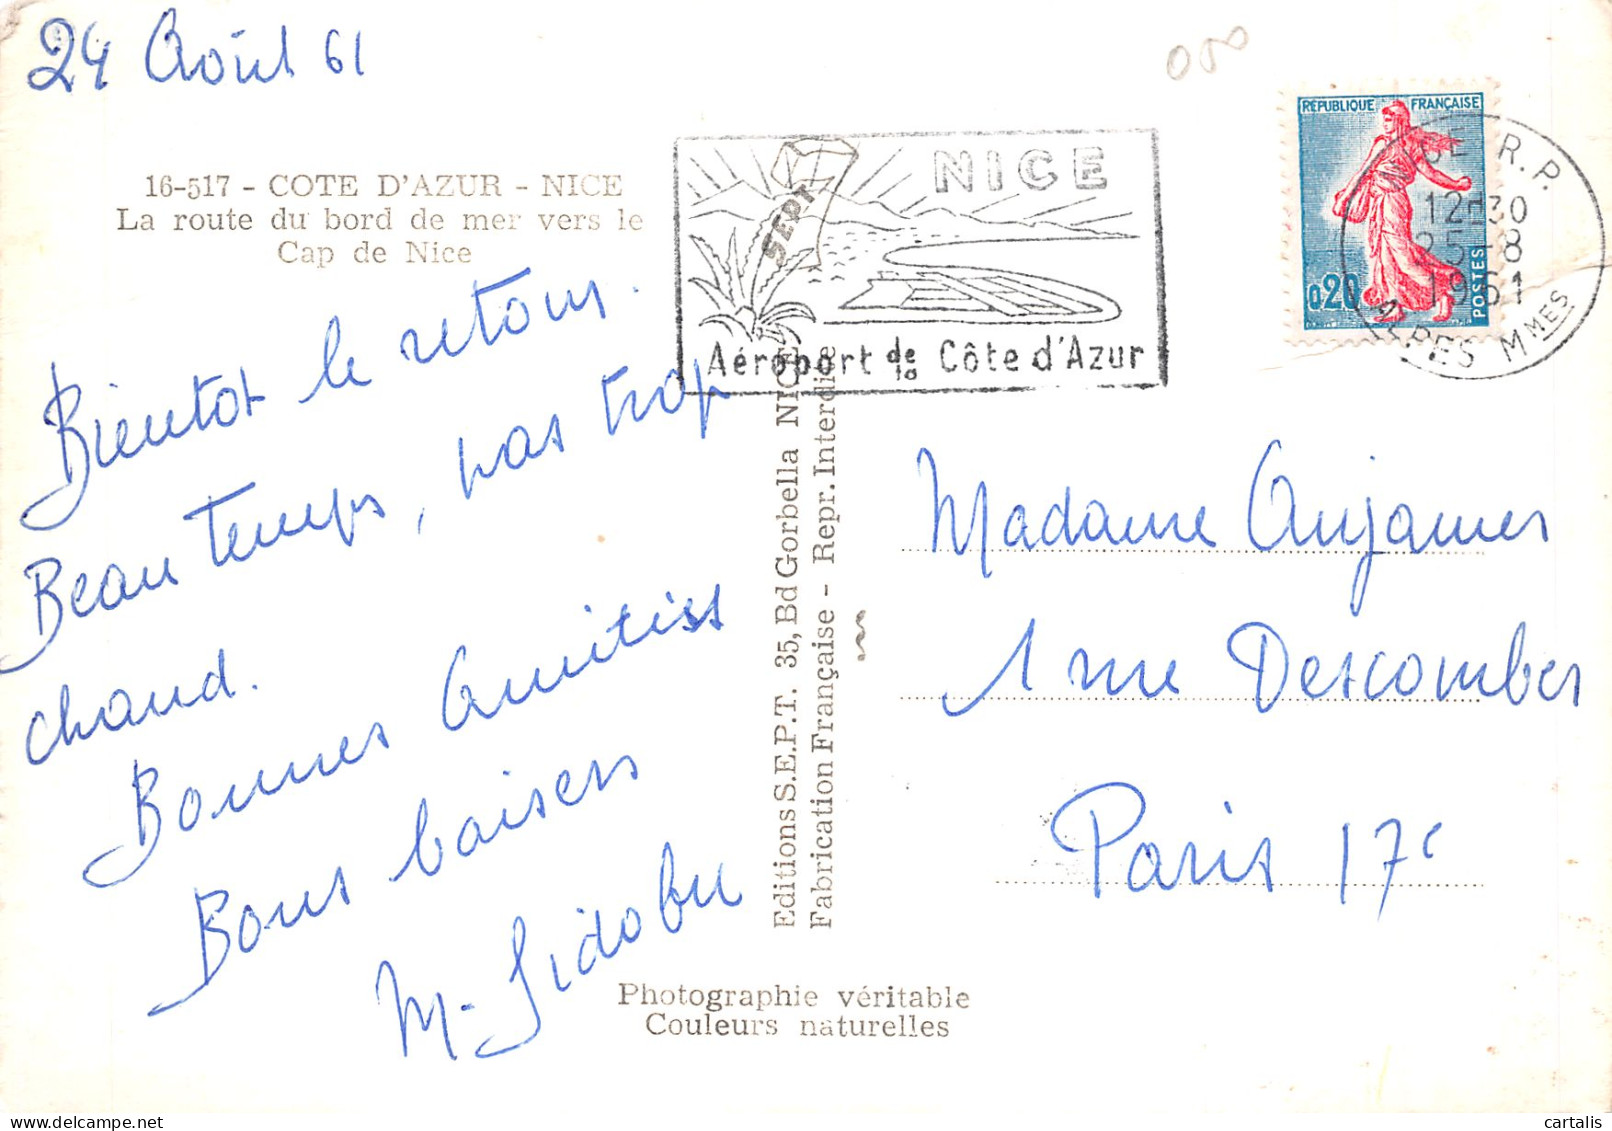 24 Août 61
16-517 - COTE D'AZUR - NICE
La route du bord de mer vers le
Cap de Nice
Bientot le retour.
Beau temps, pas trop
chaud.
Bonnes Amitiés
Bons baisers
M. Sidobu
SEPT
NICE
Aéroport de la Côte d'Azur
REPUBLIQUE FRANÇAISE
0,20
POSTES
NICE R.P.
12H30
25-8
1961
ALPES MMES
Editions S.E.P.T. 35, Bd Gorbella NICE
Fabrication Française - Repr. Interdite
Madame Anjames
1 rue Descombes
Paris 17e
Photographie véritable
Couleurs naturelles
cartalis